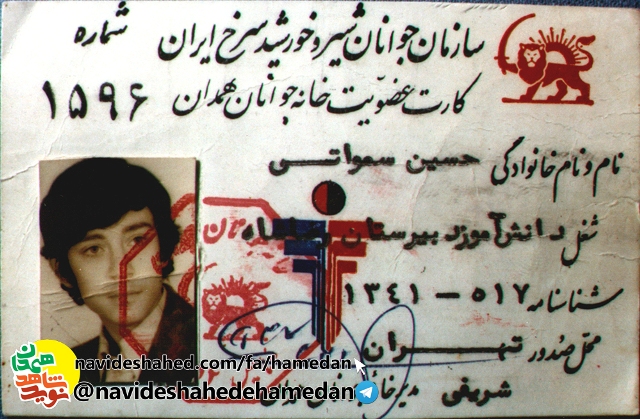 سازمان جوانان شیر و خورشید سرخ ایران
شماره
کارت عضویت خانه جوانان همدان
۱۵۹۶
نام و نام خانوادگی حسین سمواتی
شغل دانش آموز دبیرستان
شناسنامه ۵۱۷ - ۱۳۴۱
محل صدور تهران
شریفی مدیر خانه جوانان همدان
navideshahed.com/fa/hamedan
@navideshahedehamedan
نوید شاهد همدان